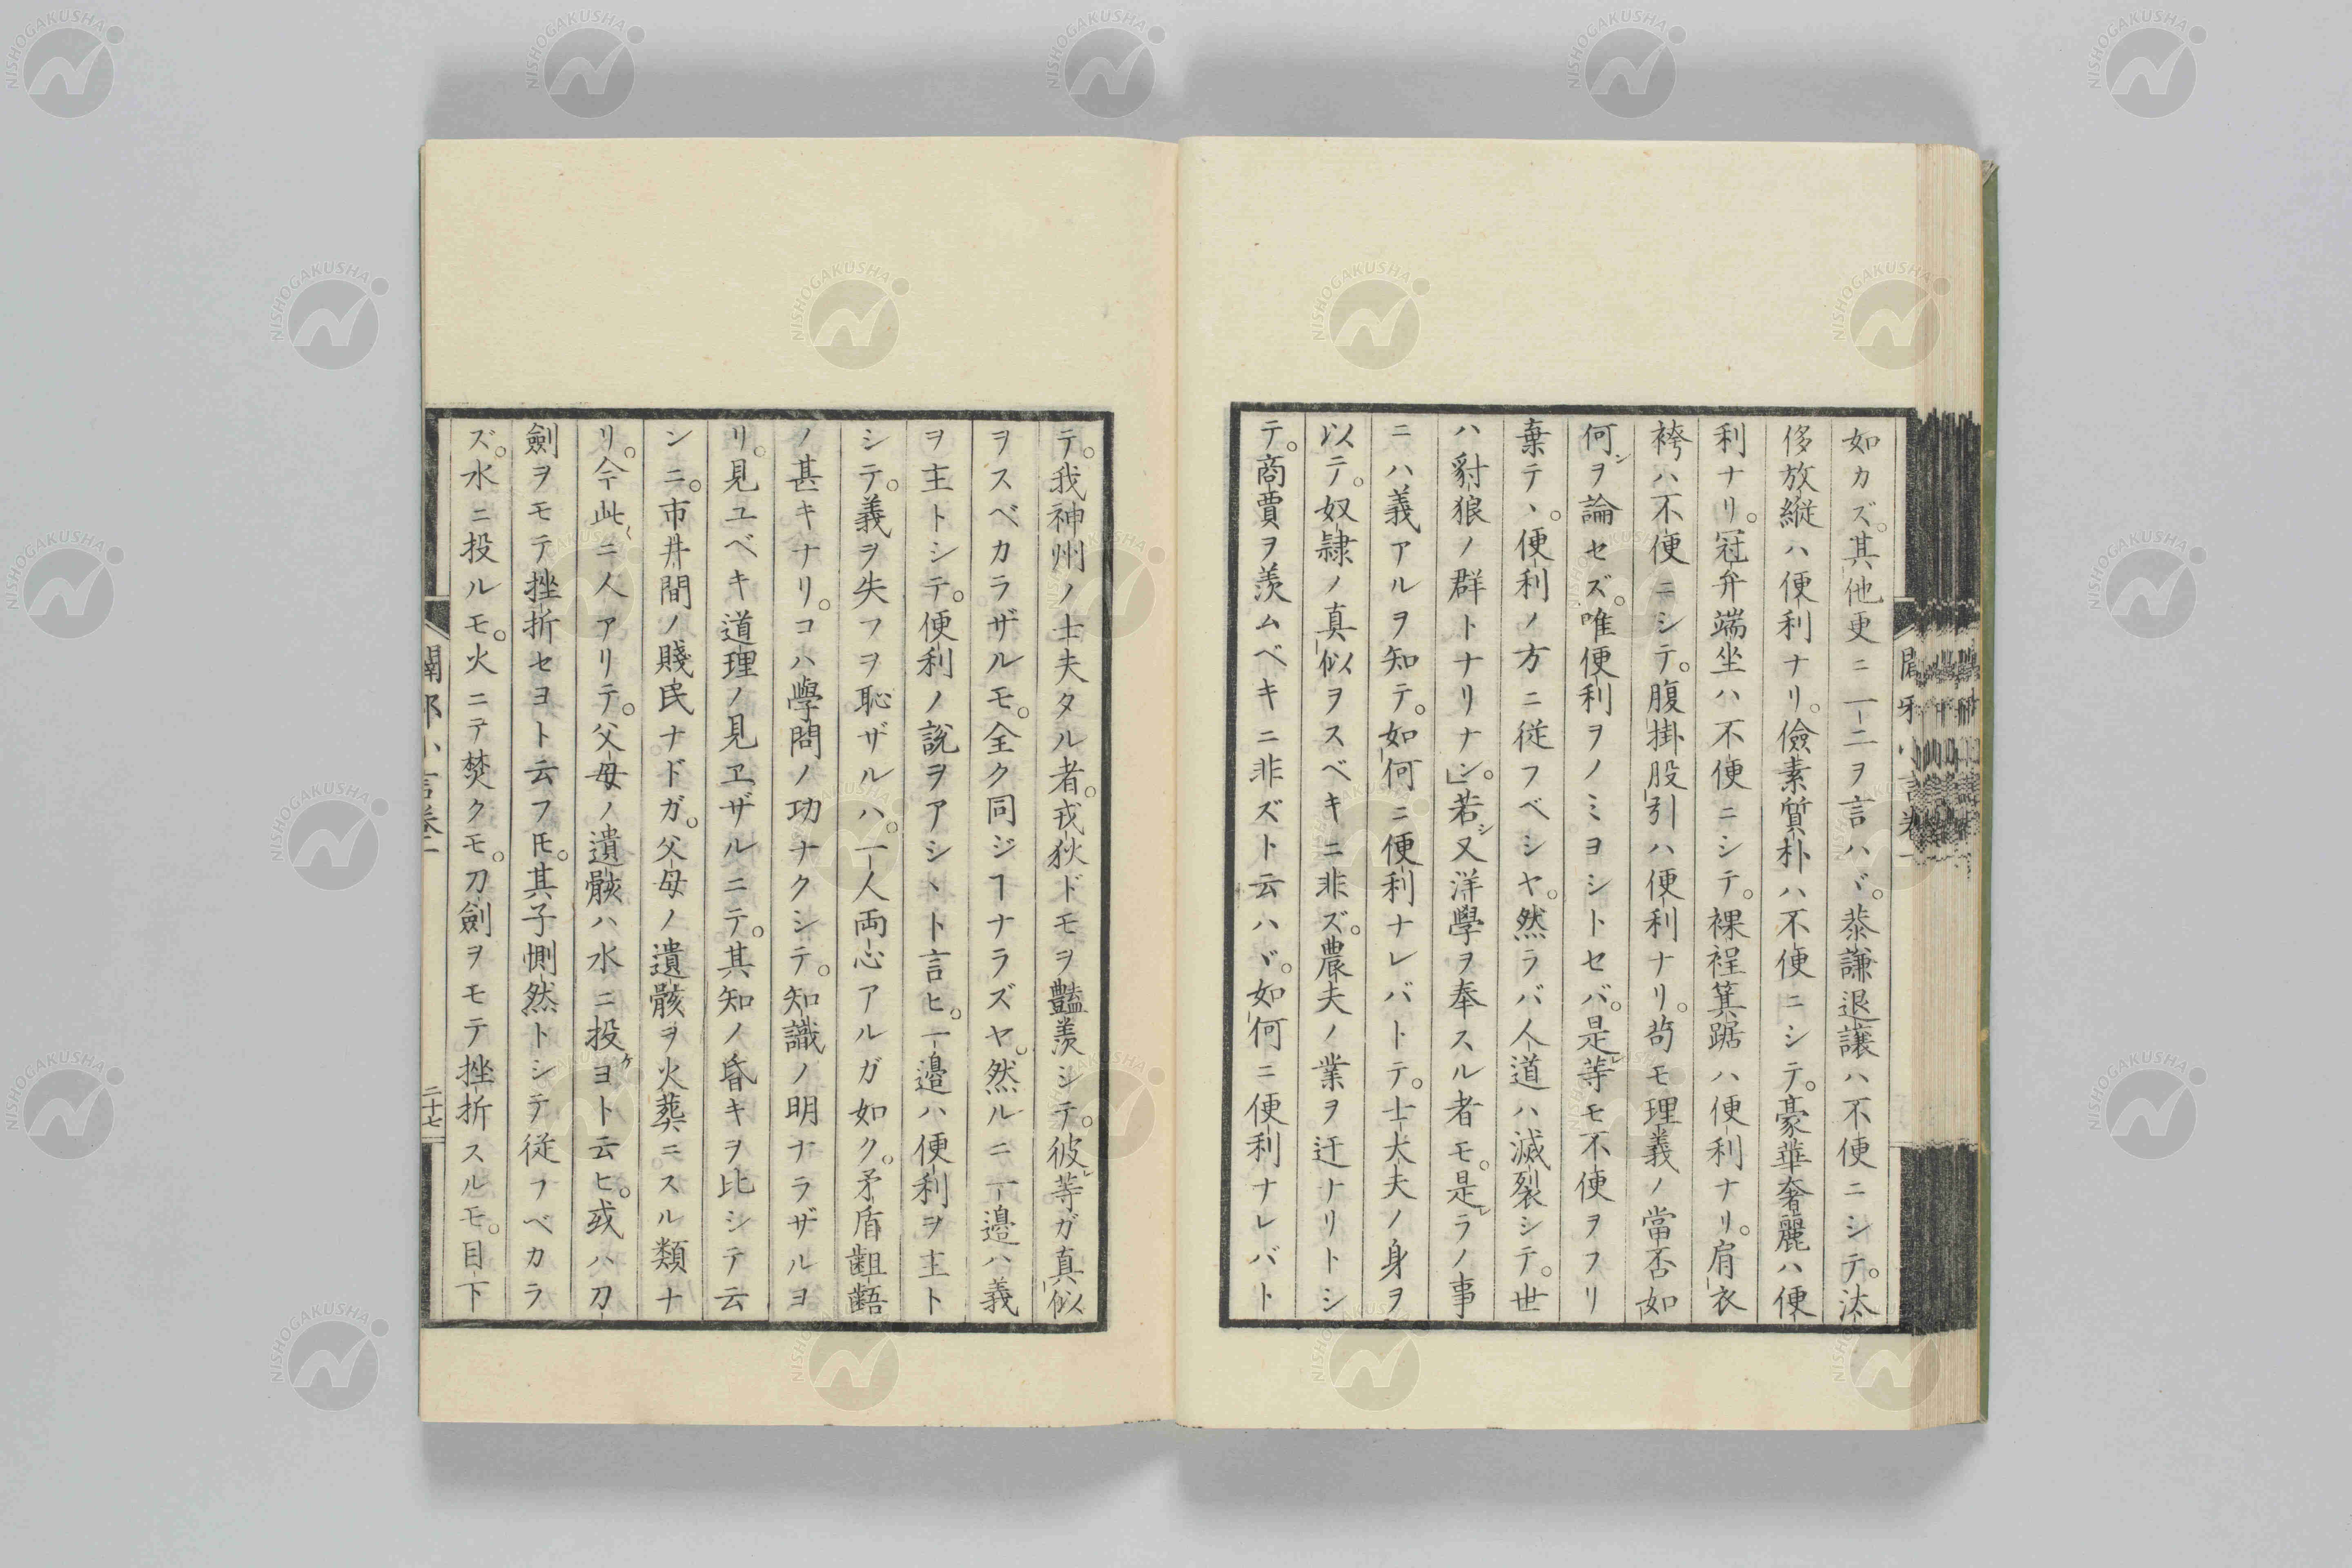 如カズ。其他更ニ一二ヲ言ハヾ。恭謙退譲ハ不便ニシテ。汰
侈放縦ハ便利ナリ。儉素質朴ハ不便ニシテ。豪華奢麗ハ便
利ナリ。冠弁端坐ハ不便ニシテ。裸裎箕踞ハ便利ナリ。肩衣
袴ハ不便ニシテ。腹掛股引ハ便利ナリ。苟モ理義ノ當否如
何シヲ論セズ。唯便利ヲノミヨシトセバ。是レ等モ不便ヲフリ
棄テヽ。便利ノ方ニ従フベシヤ。然ラバ人道ハ滅裂シテ。世
ハ豺狼ノ群トナリナン。」若シ又洋學ヲ奉スル者モ。是レラノ事
ニハ義アルヲ知テ。如何ニ便利ナレバトテ。士大夫ノ身ヲ
以テ。奴隷ノ真似ヲスベキニ非ズ。農夫ノ業ヲ迂ナリトシ
テ。商賈ヲ羨ムベキニ非ズト云ハヾ。如何ニ便利ナレバト
テ。我神州ノ士夫タル者。戎狄ドモヲ豔羨シテ。彼レ等ガ真似
ヲスベカラザルモ。全ク同ジヿナラズヤ。然ルニ一邉ハ義
ヲ主トシテ。便利ノ説ヲアシヽト言ヒ。一邉ハ便利ヲ主ト
シテ。義ヲ失フヲ恥ザルハ。一人両心アルガ如ク。矛盾齟齬
ノ甚キナリ。コハ學問ノ功ナクシテ。知識ノ明ナラザルヨ
リ。見ユベキ道理ノ見ヱザルニテ。其知ノ昏キヲ比シテ云
ンニ。市井間ノ賤民ナドガ。父母ノ遺骸ヲ火葬ニスル類ナ
リ。今此クニ人アリテ。父母ノ遺骸ハ水ニ投ケヨト云ヒ。或ハ刀
劍ヲモテ挫折セヨト云フ𪜈。其子惻然トシテ従フベカラ
ズ。水ニ投ルモ。火ニテ焚クモ。刀劍ヲモテ挫折スルモ。目下
二十七